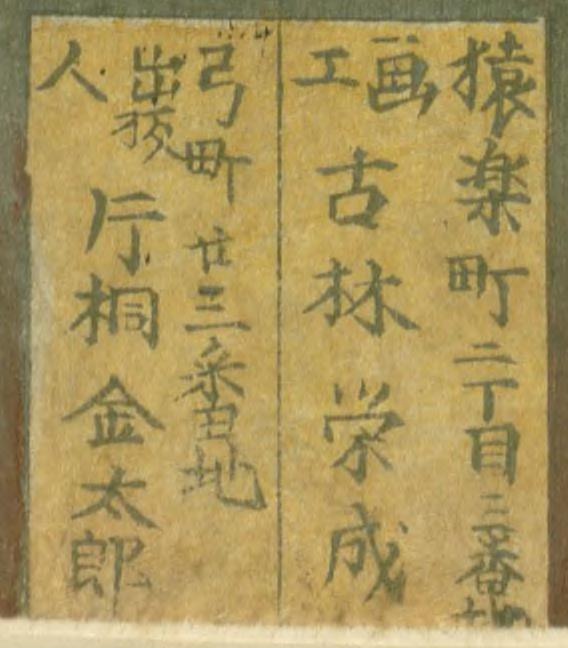 猿楽町二丁目三番地
画工 古林栄成
弓町廿三番地
出版人 片桐金太郎